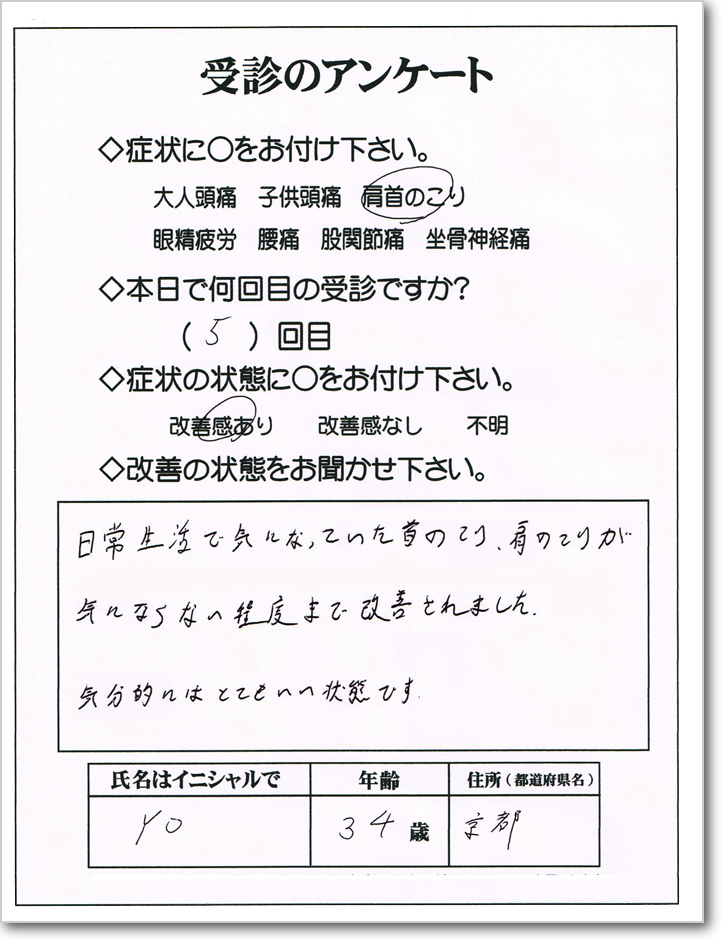 受診のアンケート
◇症状に〇をお付け下さい。
大人頭痛 子供頭痛 肩首のこり
眼精疲労 腰痛 股関節痛 坐骨神経痛
◇本日で何回目の受診ですか?
( 5 ) 回目
◇症状の状態に〇をお付け下さい。
改善感あり 改善感なし 不明
◇改善の状態をお聞かせ下さい。
日常生活で気になっていた首のこり、肩のこりが
気にならない程度まで改善されました.
気分的にはとてもいい状態です.
氏名はイニシャルで 年齢 住所(都道府県名)
YO 34歳 京都